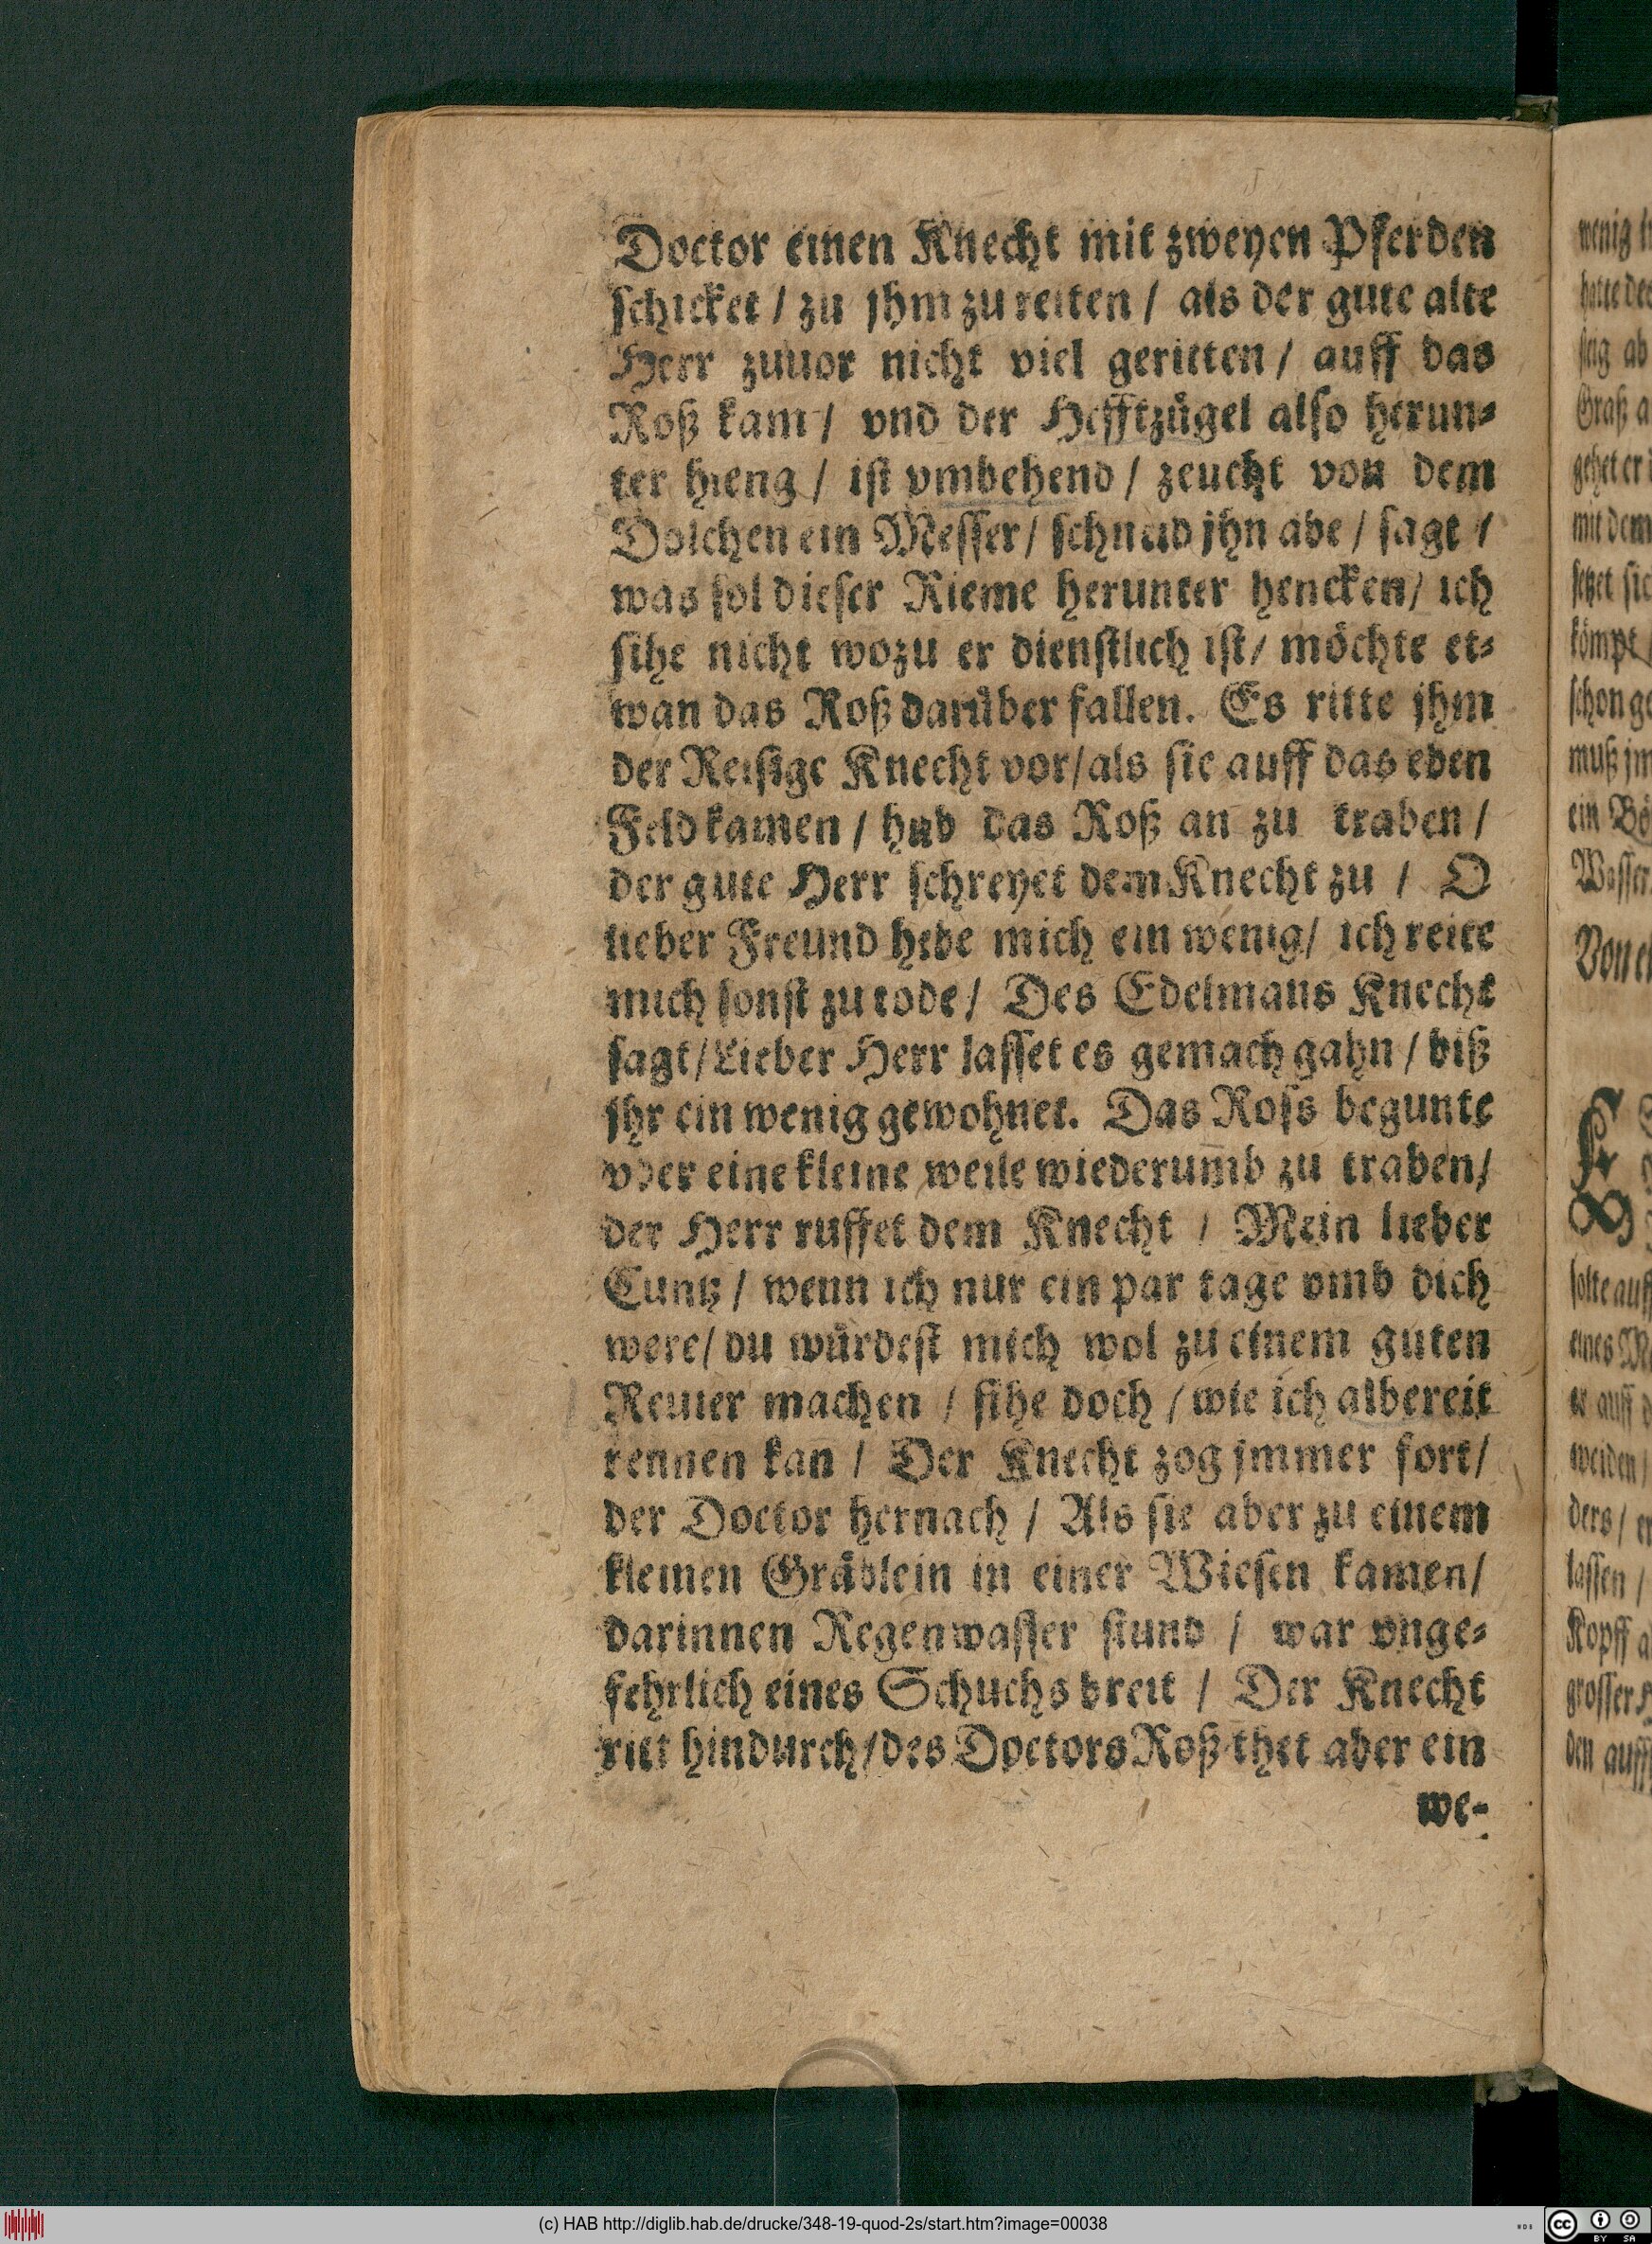 Doctor einen Knecht mit zweyen Pferden
schicket / zu jhm zu reiten / als der gute alte
Herr zuuor nicht viel geritten / auff das
Roß kam / vnd der Hefftzuͤgel also herun⸗
ter hieng / ist vmbehend / zeucht von dem
Dolchen ein Messer / schneid jhn abe / sagt /
was sol dieser Rieme herunter hencken / ich
sihe nicht wozu er dienstlich ist / moͤchte et⸗
wan das Roß daruͤber fallen. Es ritte jhm
der Reisige Knecht vor / als sie auff das eben
Feld kamen / hub das Roß an zu traben /
der gute Herr schreyet dem Knecht zu / O
lieber Freund hebe mich ein wenig / ich reite
mich sonst zu tode / Des Edelmans Knecht
sagt / Lieber Herr lasset es gemach gahn / biß
jhr ein wenig gewohnet. Das Ross begunte
vber eine kleine weile wiederumb zu traben /
der Herr ruffet dem Knecht / Mein lieber
Cuntz / wenn ich nur ein par tage vmb dich
were / du wuͤrdest mich wol zu einem guten
Reuter machen / sihe doch / wie ich albereit
rennen kan / Der Knecht zog jmmer fort /
der Doctor hernach / Als sie aber zu einem
kleinen Graͤblein in einer Wiesen kamen /
darinnen Regenwasser stund / war vnge⸗
fehrlich eines Schuchs breit / Der Knecht
ritt hindurch / des Doctors Roß thet aber ein
we-
wenig
hatte
ab
Graß
gehet er
mit dem
setzet
koͤmpt
schon
muß jm
ein
Wasser.
Von
solte auff
eines
er auff
weiden /
ders /
lassen /
Kopff
grosser
den auff
(c) HAB http://diglib.hab.de/drucke/348-19-quod-2s/start.htm?image=00038
cc BY SA